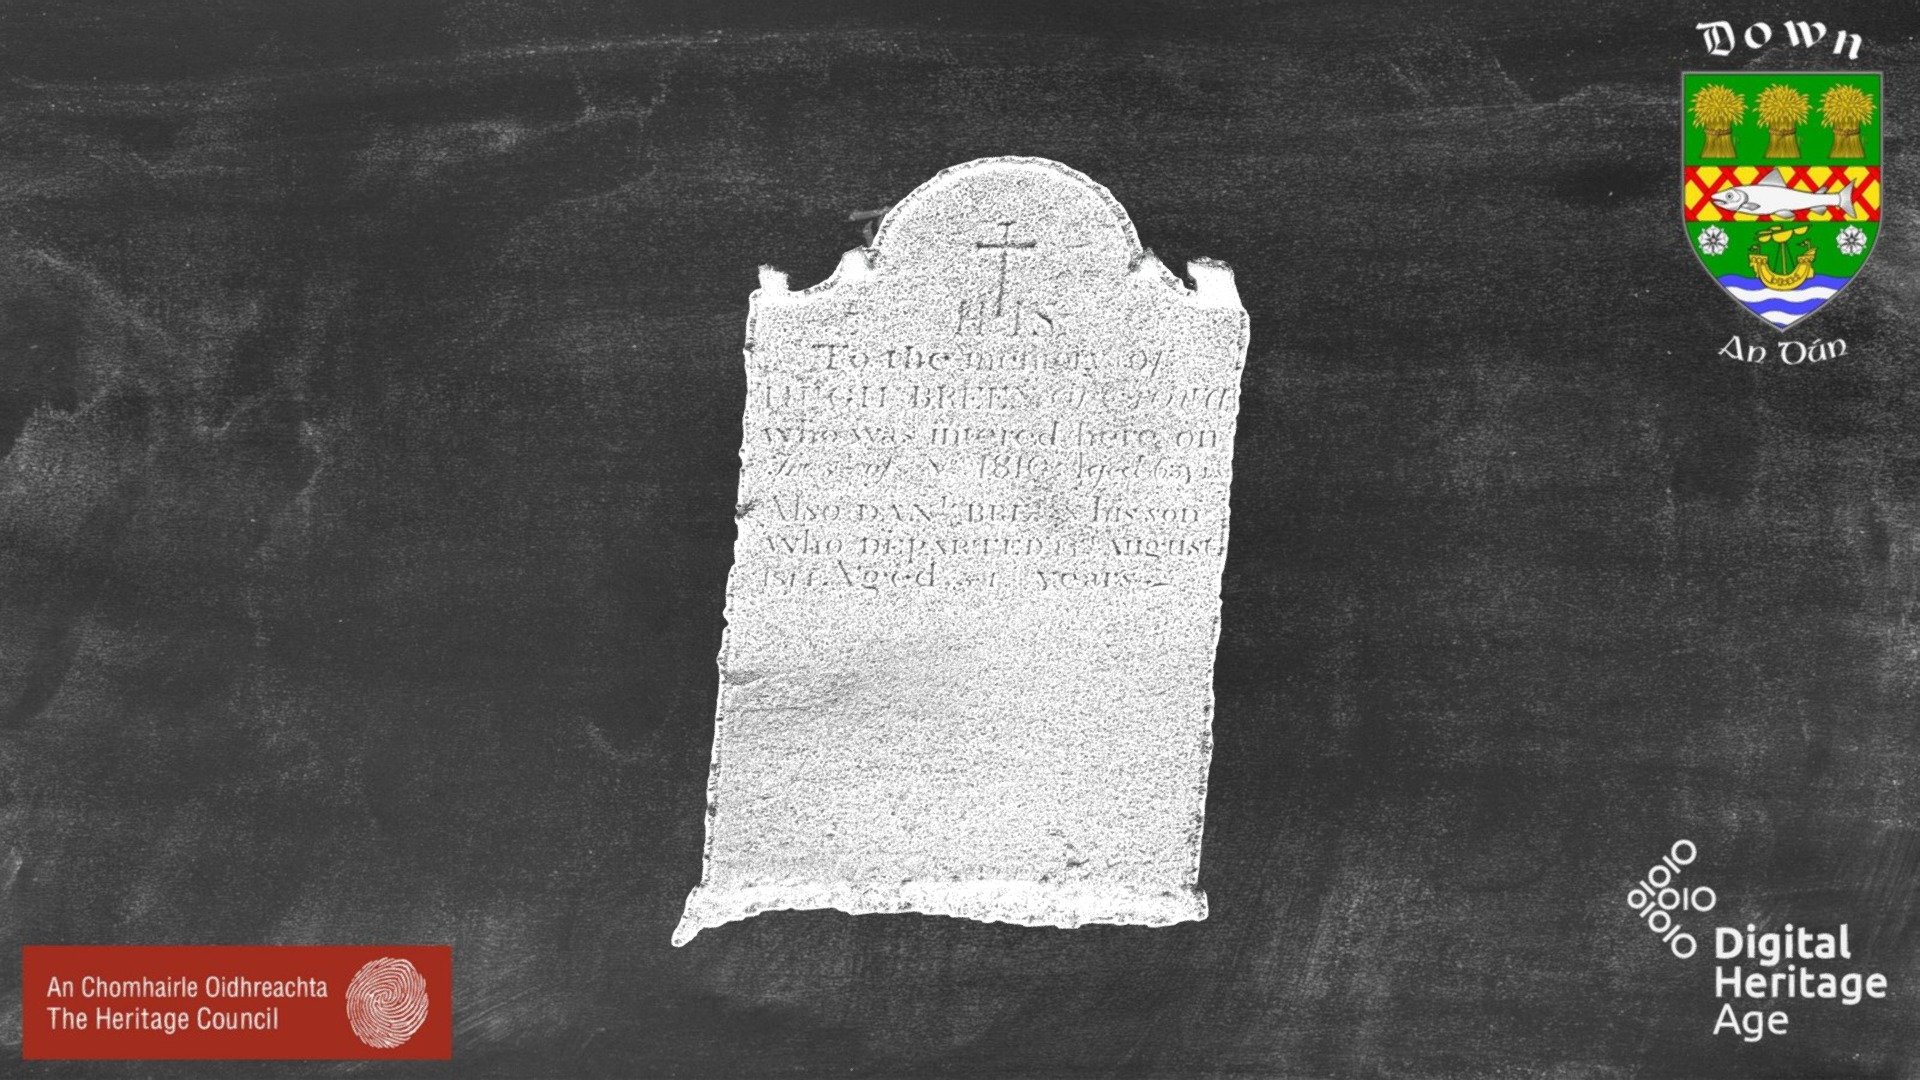 Down
An Dún
IHS
To the memory of
HUGH BREEN of
who was intered here on
of 1810 Aged 63
Also DANL. BREEN his son
Who DEPARTED August
Aged years
An Chomhairle Oidhreachta
The Heritage Council
Digital
Heritage
Age